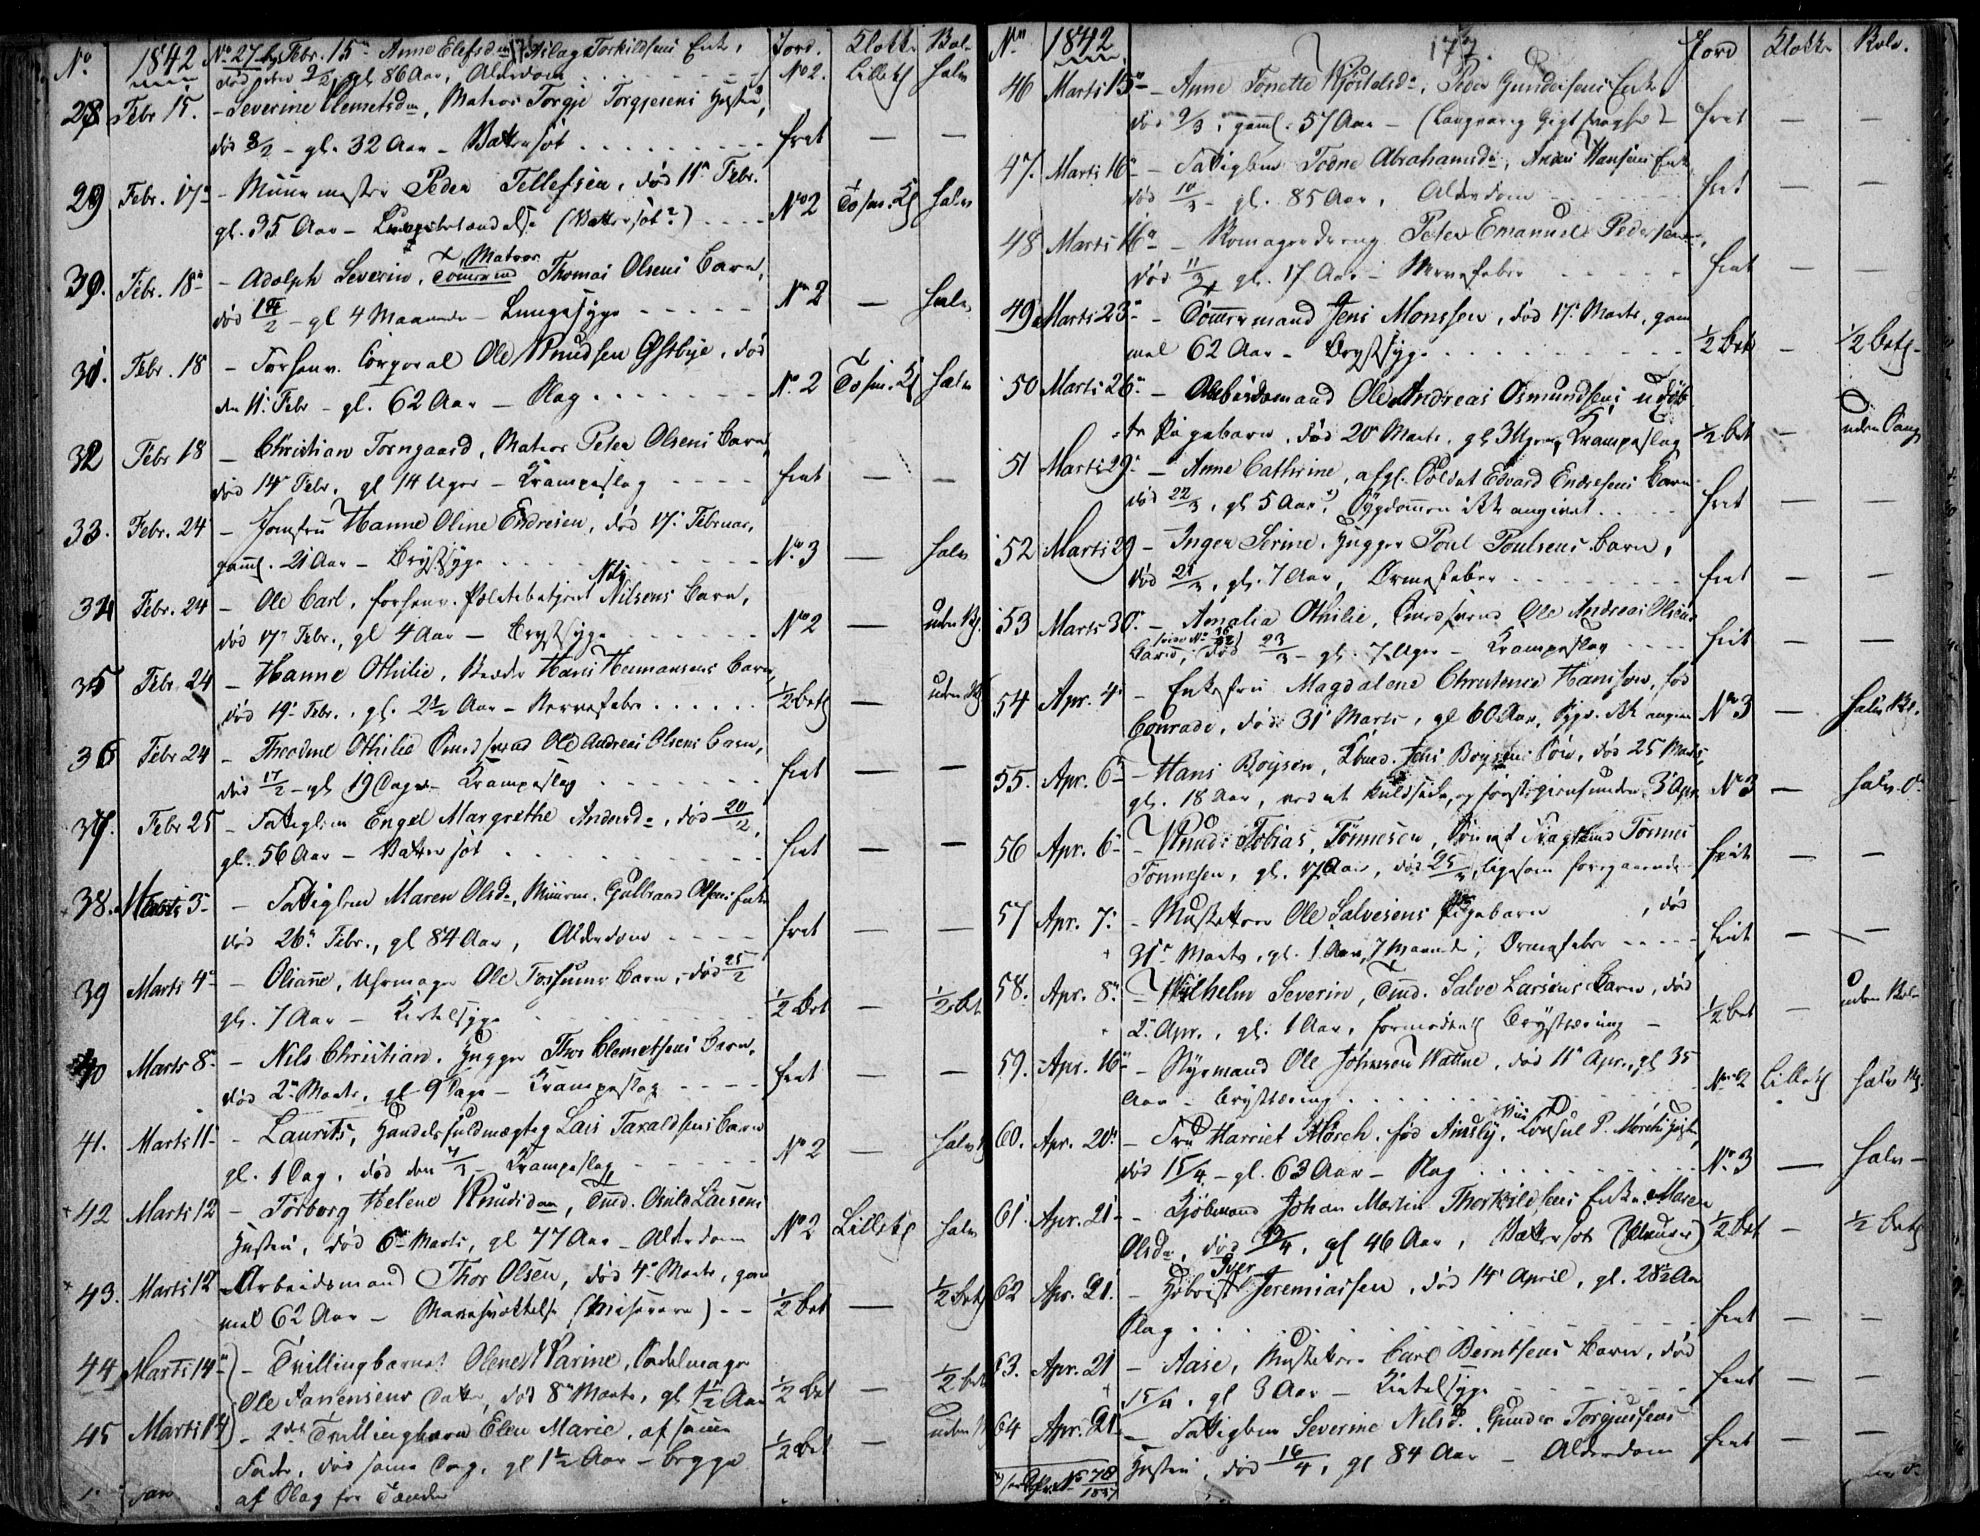 No 1842 No 27 Febr. 15 Anne Elefsd. Aslag Torkildsens Enke, Jord. Klokke Bol-
død 9/2, gl 86 Aar, Alderdom No 2. Lillekl halv
28 Febr 15. - Severine Clemetsd, Matros Torgje Torgjesens Hustru,
død 8/2 - gl. 32 Aar - Vattersot frit — —
29 Febr. 17 - Muurmester Peder Tellefsen, død 11 Febr.
gl. 35 Aar - (Vattersot?) No 2 To sm. Kl halv
30. Febr. 18 - Adolph Severin, Matros Thomas Olsens Barn,
død /2 - gl 4 Maaneder - Lungesyge No 2 — halv
31. Febr. 18 - Forhenv. Corporal Ole Knudsen Østbye, død
den 11 Febr - gl. 62 Aar - Slag No 2 To sm. Kl halv
32 Febr 18 - Christian Torngaard, Matros Peter Olsens Barn
død 14 Febr, gl 14 Uger - Krampeslag frit — —
33. Febr. 24 - Jomfru Hanne Oline Endresen, død 17 Februar,
gaml. 21 Aar - Brystsyge No 3 — halv
34 Febr. 24 - Ole Carl, forhenv. Politibetjent Nils Nilsens Barn,
død 17 Febr., gl 4 Aar - Brystsyge No 2 — uden Kl.
35 Febr 24 - Hanne Othilie, Hans Hermansens Barn
død 19 Febr., gl. 2½ Aar - Nervefeber ½ bet — uden Kl
36 Febr 24 - Theodine Othilie Ole Andreas Olsens Barn,
død 17/2 - gl 19 Dage - Krampeslag frit — —
37. Febr 25 - Fattiglem Engel Margrethe Andersd, død 20/2,
gl. 56 Aar - Vattersot frit — —
38. Marts 3 - Fattiglem Maren Olsd, Muurm. Gulbrand Olsens Enke
død 26 Febr., gl 84 Aar, Alderdom frit — —
39 Marts 4 - Oliane, Uhrmager Ole Fossums Barn, død 25/2
gl. 7 Aar - Kirtelsyge ½ bet — ½ bet
40 Marts 8 - Nils Christian, Hugger Thor Clemetsens Barn,
død 2 Marts, gl 9 Dage - Krampeslag frit — —
41. Marts 11 - Laurits, Handelsfuldmægtig Lars Taraldsens Barn
gl. 1 Dag, død den 7/3 - Krampeslag No 2 — halv
42 Marts 12 - Torborg Helene Knudsd, Tmd. Larsens
Hustru, død 6 Marts, gl 77 Aar - Alderdom No 2 Lillekl halv
43. Marts 12 - Arbeidsmand Thor Olsen, død 4 Marts, gam
mel 62 Aar - Mavesvækkelse (Miserere) ½ bet — ½ bet
44 Marts 14 - Tvillingbarnet Olene Karine, Sadelmager
Ole Aanensens Datter, død 8 Marts, gl 1½ Aar ½ bet — ½ bet
45 Marts 14 - 2det Tvillingbarn Elen Marie, af samme
Fader, død samme Dag, gl 1½ Aar - begge ½ bet — uden
af Slag for Tænder
No 1842 177. Jord Klokke Bolv.
46 Marts 15 - Anne Tonette Kjøstelsd, Peder Gundersens Enke
død 9/3, gaml. 57 Aar - (Langvarig Gigtsvaghed) frit — —
47. Marts 16 - Fattiglem Todne Abrahamsd, Anders Hansens Enke
død 10/3 - gl. 85 Aar, Alderdom frit — —
48 Marts 16 - Skomagerdreng Peter Emanuel Pedersen,
død 11/3 gl. 17 Aar - Nervefeber frit — —
49 Marts 23 - Tømmermand Jens Monssen, død 17 Marts, gam
mel 62 Aar - Brystsyge ½ bet — ½ bet
50 Marts 26 - Arbeidsmand Ole Andreas Osmundsens udøb
te Pigebarn, død 20 Marts, gl 3 Uger, Krampeslag ½ bet — uden Sang
51 Marts 29 - Anne Cathrine, afgl. Soldat Edvard Endresens Barn
død 22/3, gl 5 Aar, Sygdommen ikke angivet frit — —
52 Marts 29 - Inger Serine, Hugger Poul Poulsens Barn,
død 21/3, gl. 7 Aar, Ormefeber frit — —
53 Marts 30. - Amalia Othilie, Ole Andreas Olsens
Barn, (see No 36) død 23/3 - gl. 7 Uger - Krampeslag frit — —
54 Apr. 4 - Enkefru Magdalene Christence Hansson, fød
Conrade, død 31 Marts, gl 60 Aar, Sygd. ikke angiven No 3 — halv Kl.
55. Apr. 6 - Hans Boysen, Kbmd. Jens Boysens Søn, død 25 Marts,
gl. 18 Aar, ved at kuldseile, og først igjenfunden 3 Apr. No 3 — halv do
56 Apr. 6 - Knud Tobias Tønnesen, Søn af Fragtmand Tønnes
Tonnesen, gl. 17 Aar, død 25/3, ligesom foregaaende frit — —
57 Apr. 7. - Musketeer Ole Salvesens Pigebarn, død
31 Marts, gl. 1 Aar, 7 Maaneder, Ormefeber frit — —
58. Apr. 8. - Wilhelm Severin, Tmd. Salve Larsens Barn, død
2 Apr., gl. 1 Aar, formodentl Brysttæring ½ bet — uden Kl
59. Apr. 16 - Styrmand Ole Johnson Wattne, død 11 Apr., gl 35
Aar - Brysttæring No 2 Lillekl halv Kl.
60. Apr. 20 - Fru Harriet Mørch, fød Ainsly, Consul P. Mørchs Hustru,
død 15/4 - gl. 63 Aar - Slag No. 3 — halv -
61. Apr. 21 - Kjøbmand Johan Martin Thorkildsens Enke Maren
Olsd, død /4, gl 46 Aar, Vattersot ½ bet — ½ bet
62 Apr. 21. - Iver Jeremiassen, død 14 April, gl. 28½ Aar
Slag frit — —
63. Apr. 21 - Aase, Musketeer Carl Berntsens Barn, død
15/4, gl 3 Aar - Kirtelsyge frit — —
64 Apr. 21 - Fattiglem Severine Nilsd. Gunder Torgiussens
Hustru, død 16/4, gl 84 Aar - Alderdom frit — —
No 78/1837